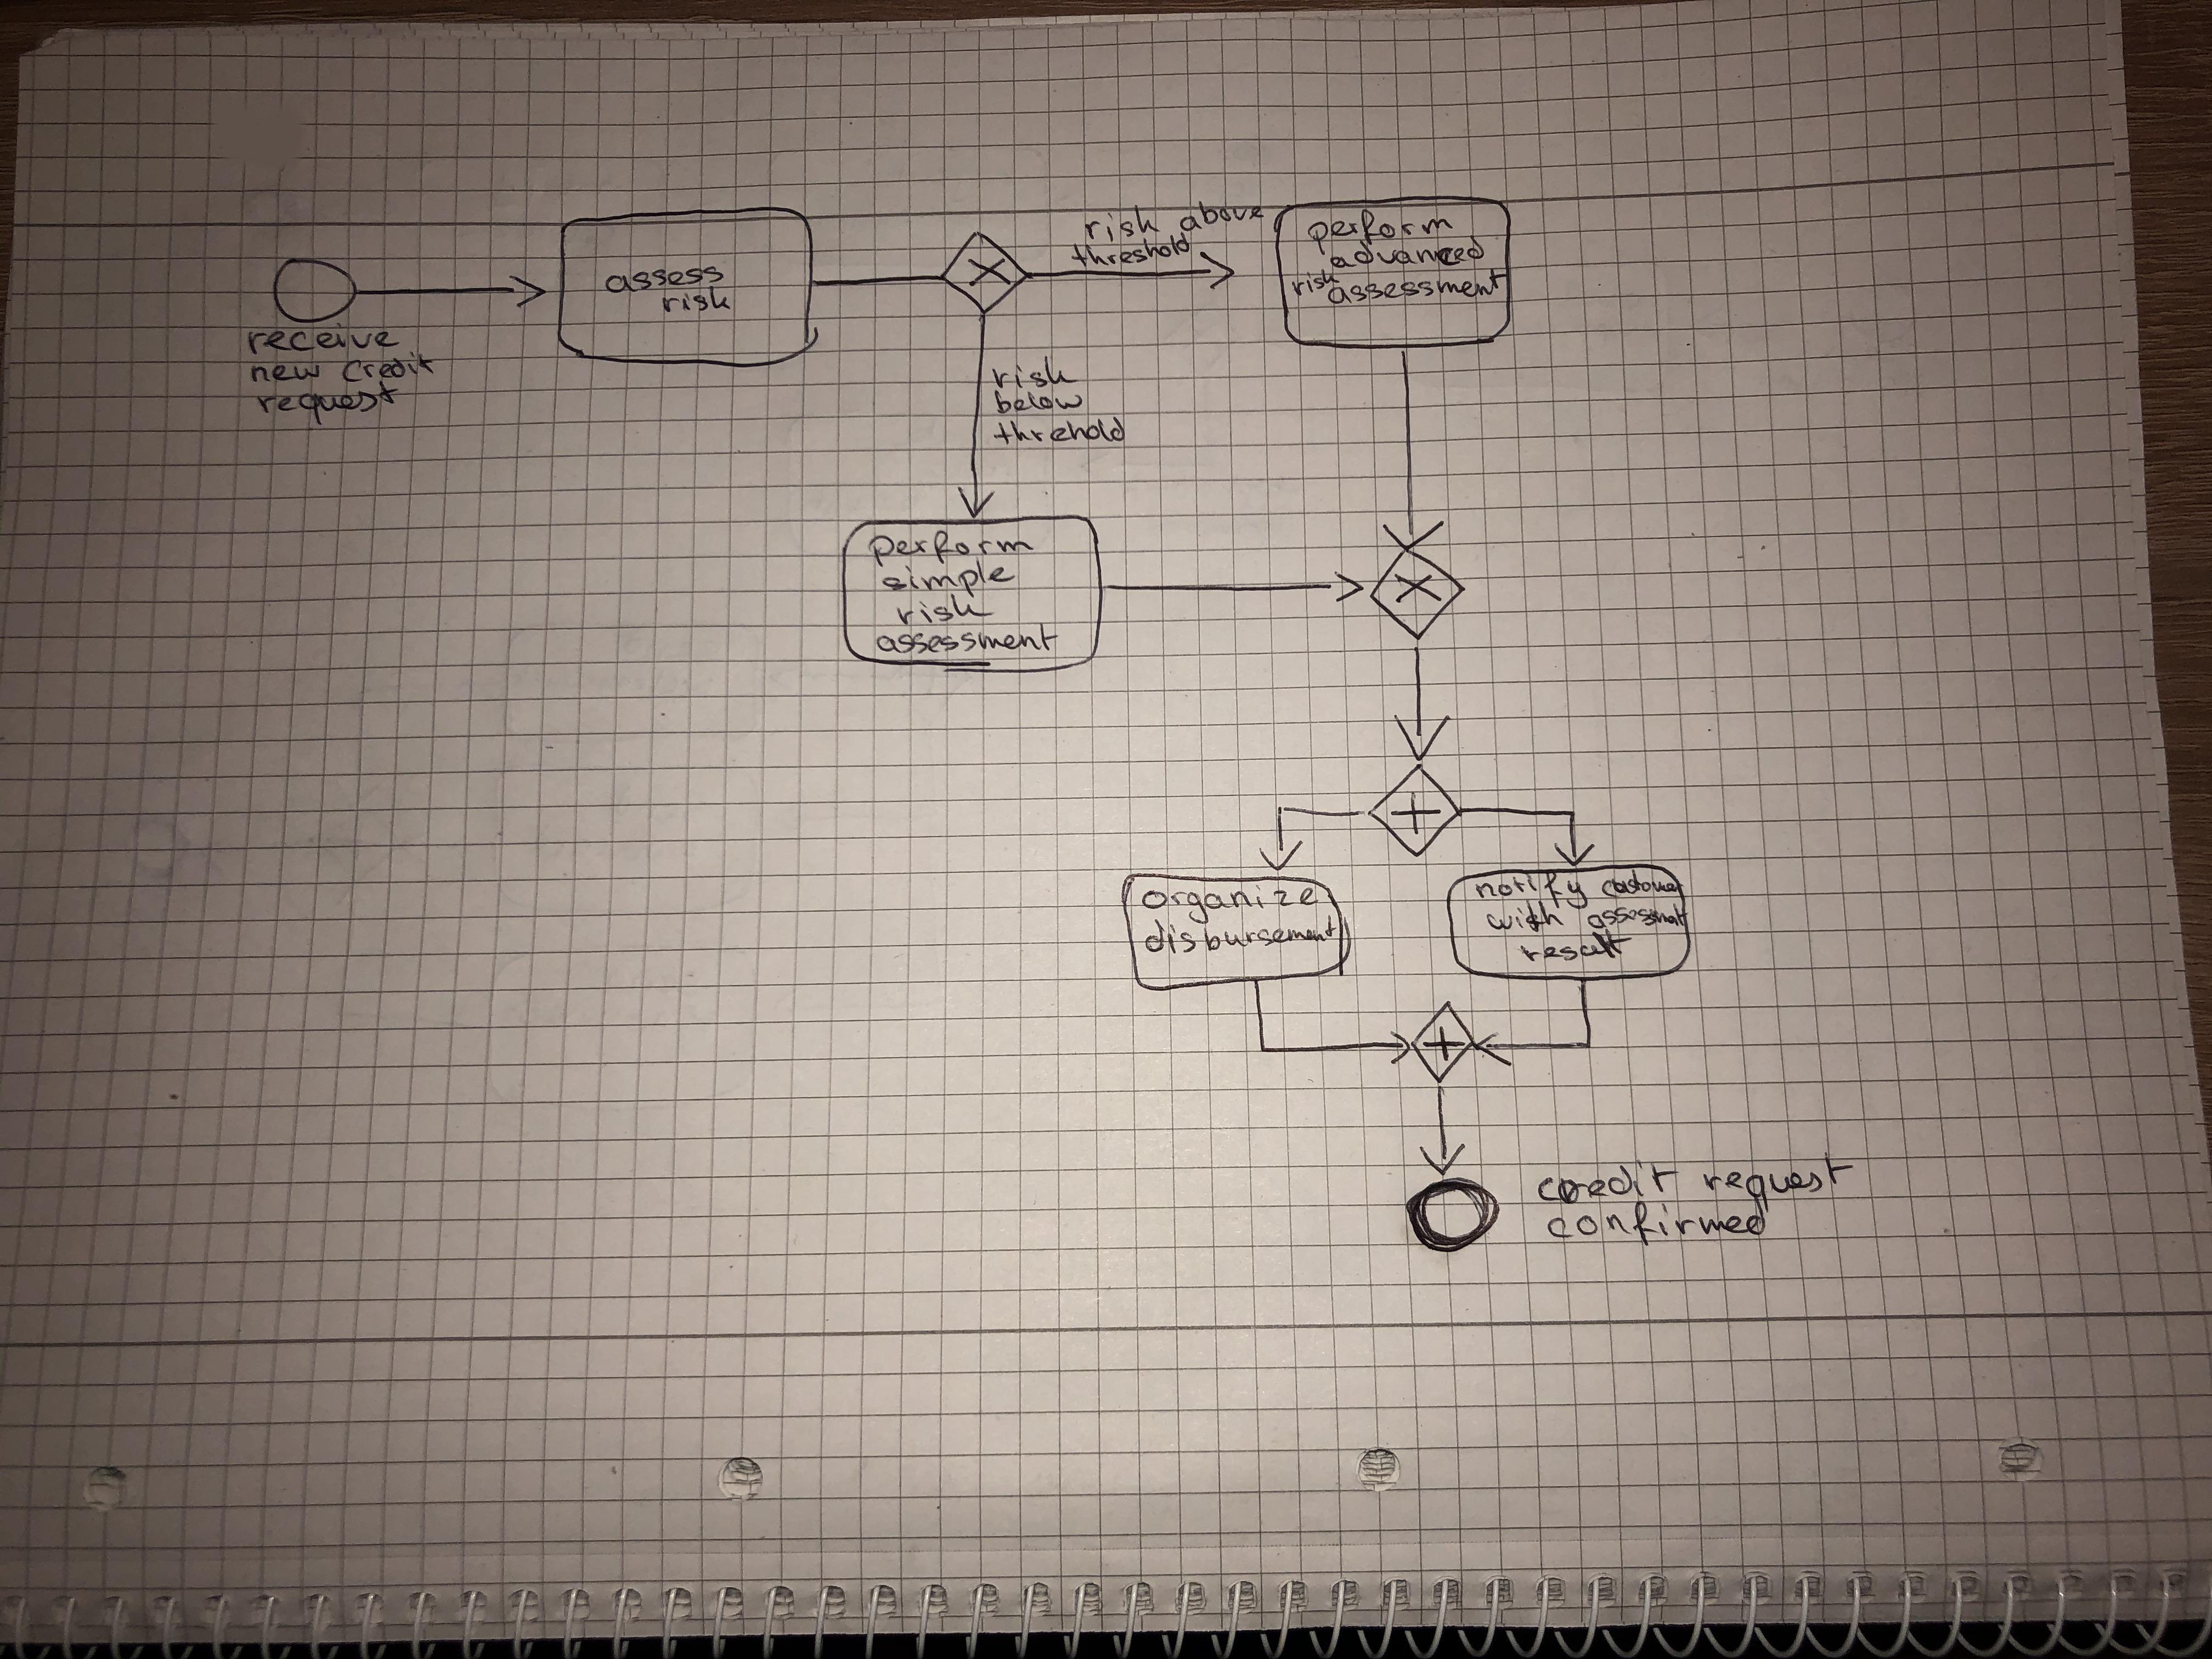 receive
new credit
request
assess
risk
risk above
threshold
perform
advanced
risk assessment
risk
below
threhold
perform
simple
risk
assessment
organize
disbursement
notify customer
with assesment
result
credit request
confirmed